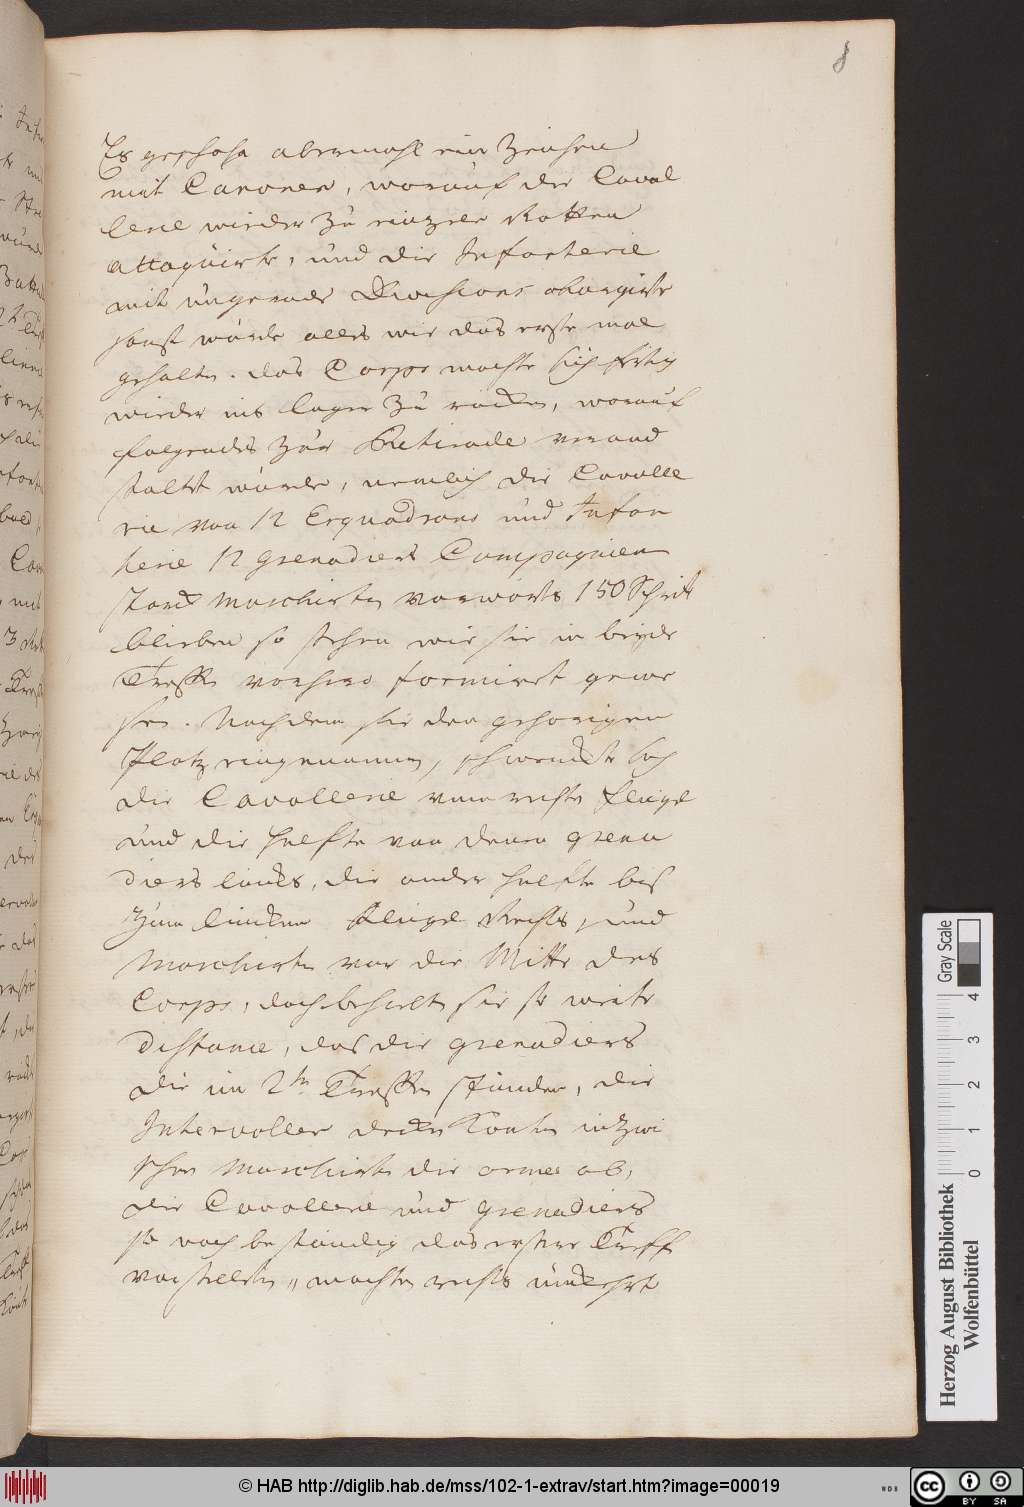 8
Es geschahe abermahl ein Zeichen
mit Canonen, worauf die Caval
lerie wieder zu eintzele Rotten
attaquirte, und die Infanterie
mit ungerade Divisions chargirte
sonst wurde alles wie das erste mal
gehalten. das Corps machte sich fertig
wieder ins lager zu rücken, worauf
folgendes zur Retirade verand
staltet wurde, nemlich die Cavalle
rie von 12 Esquadrons und Infan
terie 12 grenadiers Compagnien
starck marschirten vorwärts 150 Schritt
blieben so stehen wie sie in beyde
Treffen vorhero formirt gewe
sen. Nachdem sie den gehörigen
Platz eingenommen, schwenckte sich
die Cavallerie vom rechten flügel
und die helfte von denen grena
diers lincks, die ander helfte bis
zum lincken flügel Rechts, und
Marschirten vor die Mitte des
Corps, doch behielten sie so weite
distance, das die grenadiers
die im 2ten Treffen stunden, die
Intervallen decken konten intzwi
schen Marschirte die armee ab,
die Cavallerie und grenadiers
so noch beständig das erstere Treff
vorstellten, machten rechts umkehrt
Herzog August Bibliothek
Wolfenbüttel
Gray Scale
0 1 2 3 4
© HAB http://diglib.hab.de/mss/102-1-extrav/start.htm?image=00019
WDB
cc BY SA